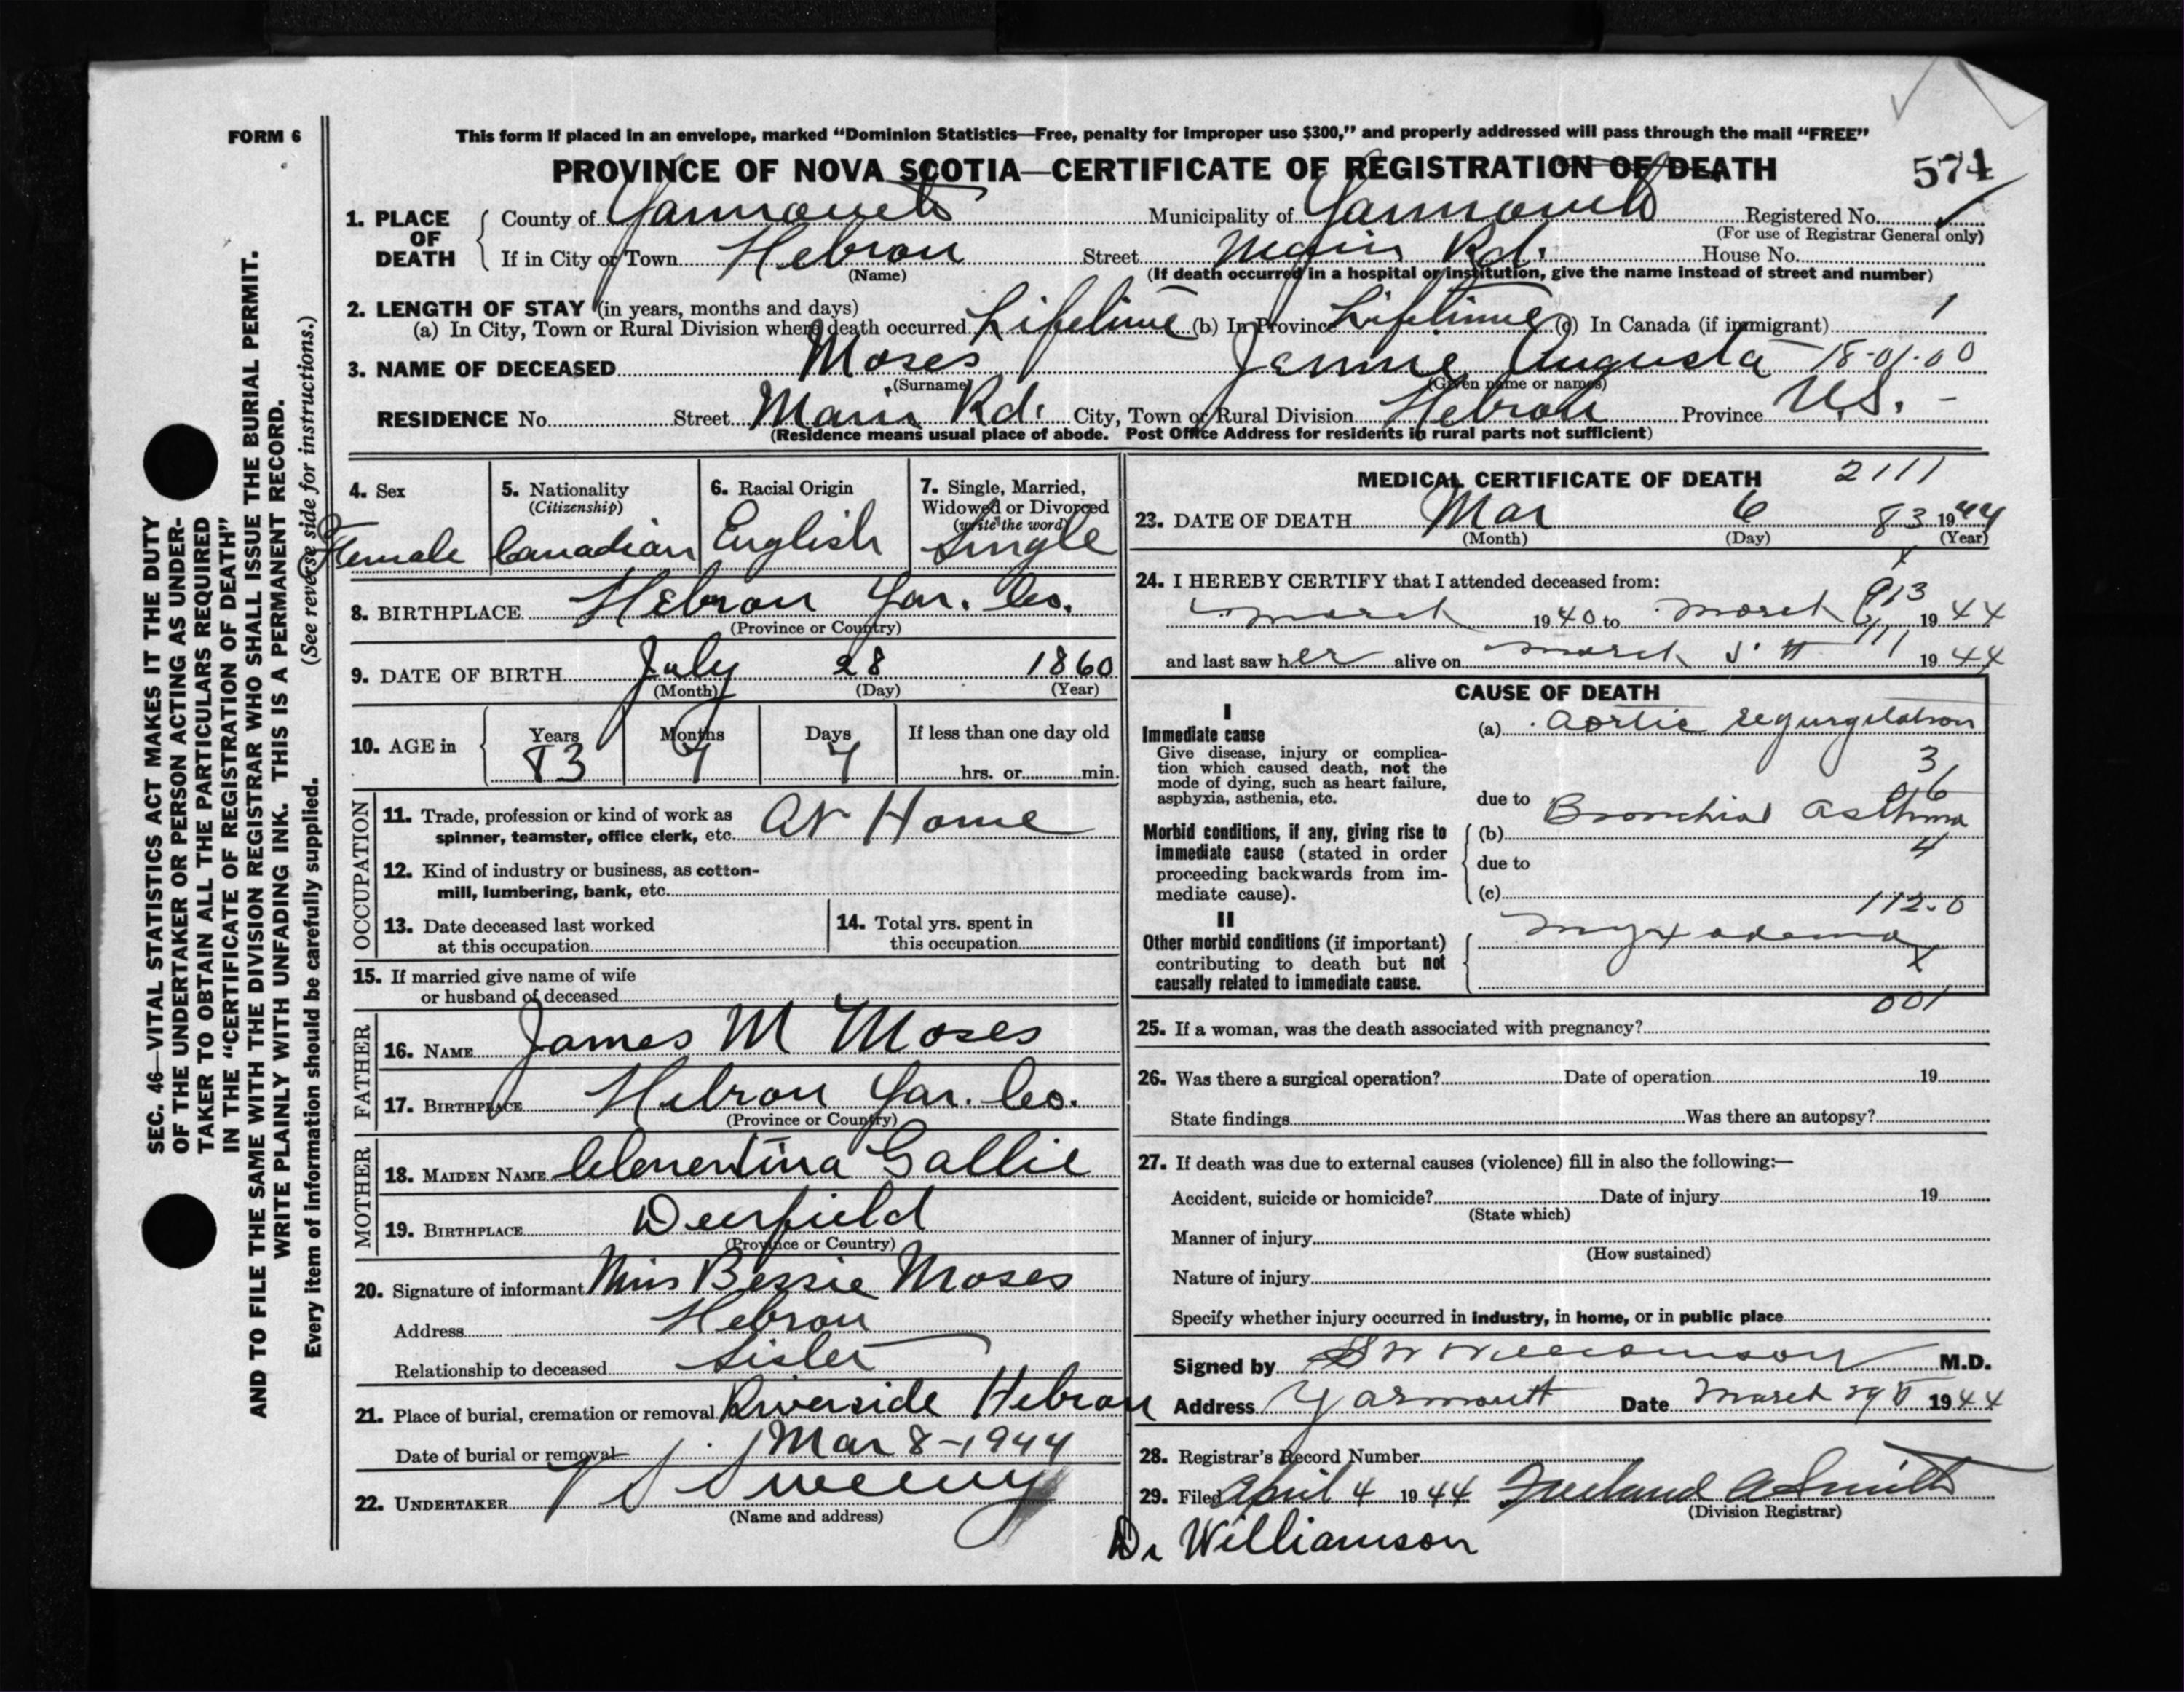 FORM 6
This form if placed in an envelope, marked "Dominion Statistics—Free, penalty for improper use $300," and properly addressed will pass through the mail "FREE"
PROVINCE OF NOVA SCOTIA—CERTIFICATE OF REGISTRATION OF DEATH
574
1. PLACE OF DEATH { County of Yarmouth Municipality of Yarmouth Registered No.
(For use of Registrar General only)
If in City or Town Hebron Street Main Rd. House No.
(Name) (If death occurred in a hospital or institution, give the name instead of street and number)
2. LENGTH OF STAY (in years, months and days)
(a) In City, Town or Rural Division where death occurred Lifetime (b) In Province Lifetime (c) In Canada (if immigrant) 1
3. NAME OF DECEASED Moses Jennie Augusta 18-01-00
(Surname) (Given name or names)
RESIDENCE No. Street Main Rd. City, Town or Rural Division Hebron Province N.S. -
(Residence means usual place of abode. Post Office Address for residents in rural parts not sufficient)
SEC. 46—VITAL STATISTICS ACT MAKES IT THE DUTY
OF THE UNDERTAKER OR PERSON ACTING AS UNDER-
TAKER TO OBTAIN ALL THE PARTICULARS REQUIRED
IN THE "CERTIFICATE OF REGISTRATION OF DEATH"
AND TO FILE THE SAME WITH THE DIVISION REGISTRAR WHO SHALL ISSUE THE BURIAL PERMIT.
WRITE PLAINLY WITH UNFADING INK. THIS IS A PERMANENT RECORD.
Every item of information should be carefully supplied. (See reverse side for instructions.)
4. Sex 5. Nationality 6. Racial Origin 7. Single, Married,
(Citizenship) Widowed or Divorced
(write the word)
Female Canadian English Single
8. BIRTHPLACE Hebron Yar. Co.
(Province or Country)
9. DATE OF BIRTH July 28 1860
(Month) (Day) (Year)
10. AGE in { Years Months Days If less than one day old
83 7 7 hrs. or min.
OCCUPATION
11. Trade, profession or kind of work as
spinner, teamster, office clerk, etc. At Home
12. Kind of industry or business, as cotton-
mill, lumbering, bank, etc.
13. Date deceased last worked
at this occupation
14. Total yrs. spent in
this occupation
15. If married give name of wife
or husband of deceased
FATHER
16. NAME James M Moses
17. BIRTHPLACE Hebron Yar. Co.
(Province or Country)
MOTHER
18. MAIDEN NAME Clementina Gallie
19. BIRTHPLACE Deerfield
(Province or Country)
20. Signature of informant Miss Bessie Moses
Address Hebron
Relationship to deceased Sister
21. Place of burial, cremation or removal Riverside Hebron
Date of burial or removal Mar 8-1944
22. UNDERTAKER V S Sweeny
(Name and address)
MEDICAL CERTIFICATE OF DEATH 2111
23. DATE OF DEATH Mar 6 83 1944
(Month) (Day) (Year)
24. I HEREBY CERTIFY that I attended deceased from:
March 1940 to March 1944
and last saw her alive on March 5th 1944
CAUSE OF DEATH
I
Immediate cause
Give disease, injury or complica-
tion which caused death, not the
mode of dying, such as heart failure,
asphyxia, asthenia, etc.
(a) Aortic regurgitation
3
due to
Morbid conditions, if any, giving rise to
immediate cause (stated in order
proceeding backwards from im-
mediate cause).
(b) Bronchial asthma
4
due to
(c)
112.0
II
Other morbid conditions (if important)
contributing to death but not
causally related to immediate cause.
Myxodema
X
001
25. If a woman, was the death associated with pregnancy?
26. Was there a surgical operation? Date of operation 19
State findings Was there an autopsy?
27. If death was due to external causes (violence) fill in also the following:—
Accident, suicide or homicide? Date of injury 19
(State which)
Manner of injury
(How sustained)
Nature of injury
Specify whether injury occurred in industry, in home, or in public place
Signed by S W Williamson M.D.
Address Yarmouth Date March 29 1944
28. Registrar's Record Number
29. Filed April 4 1944 Freeland A Smith
(Division Registrar)
Dr Williamson